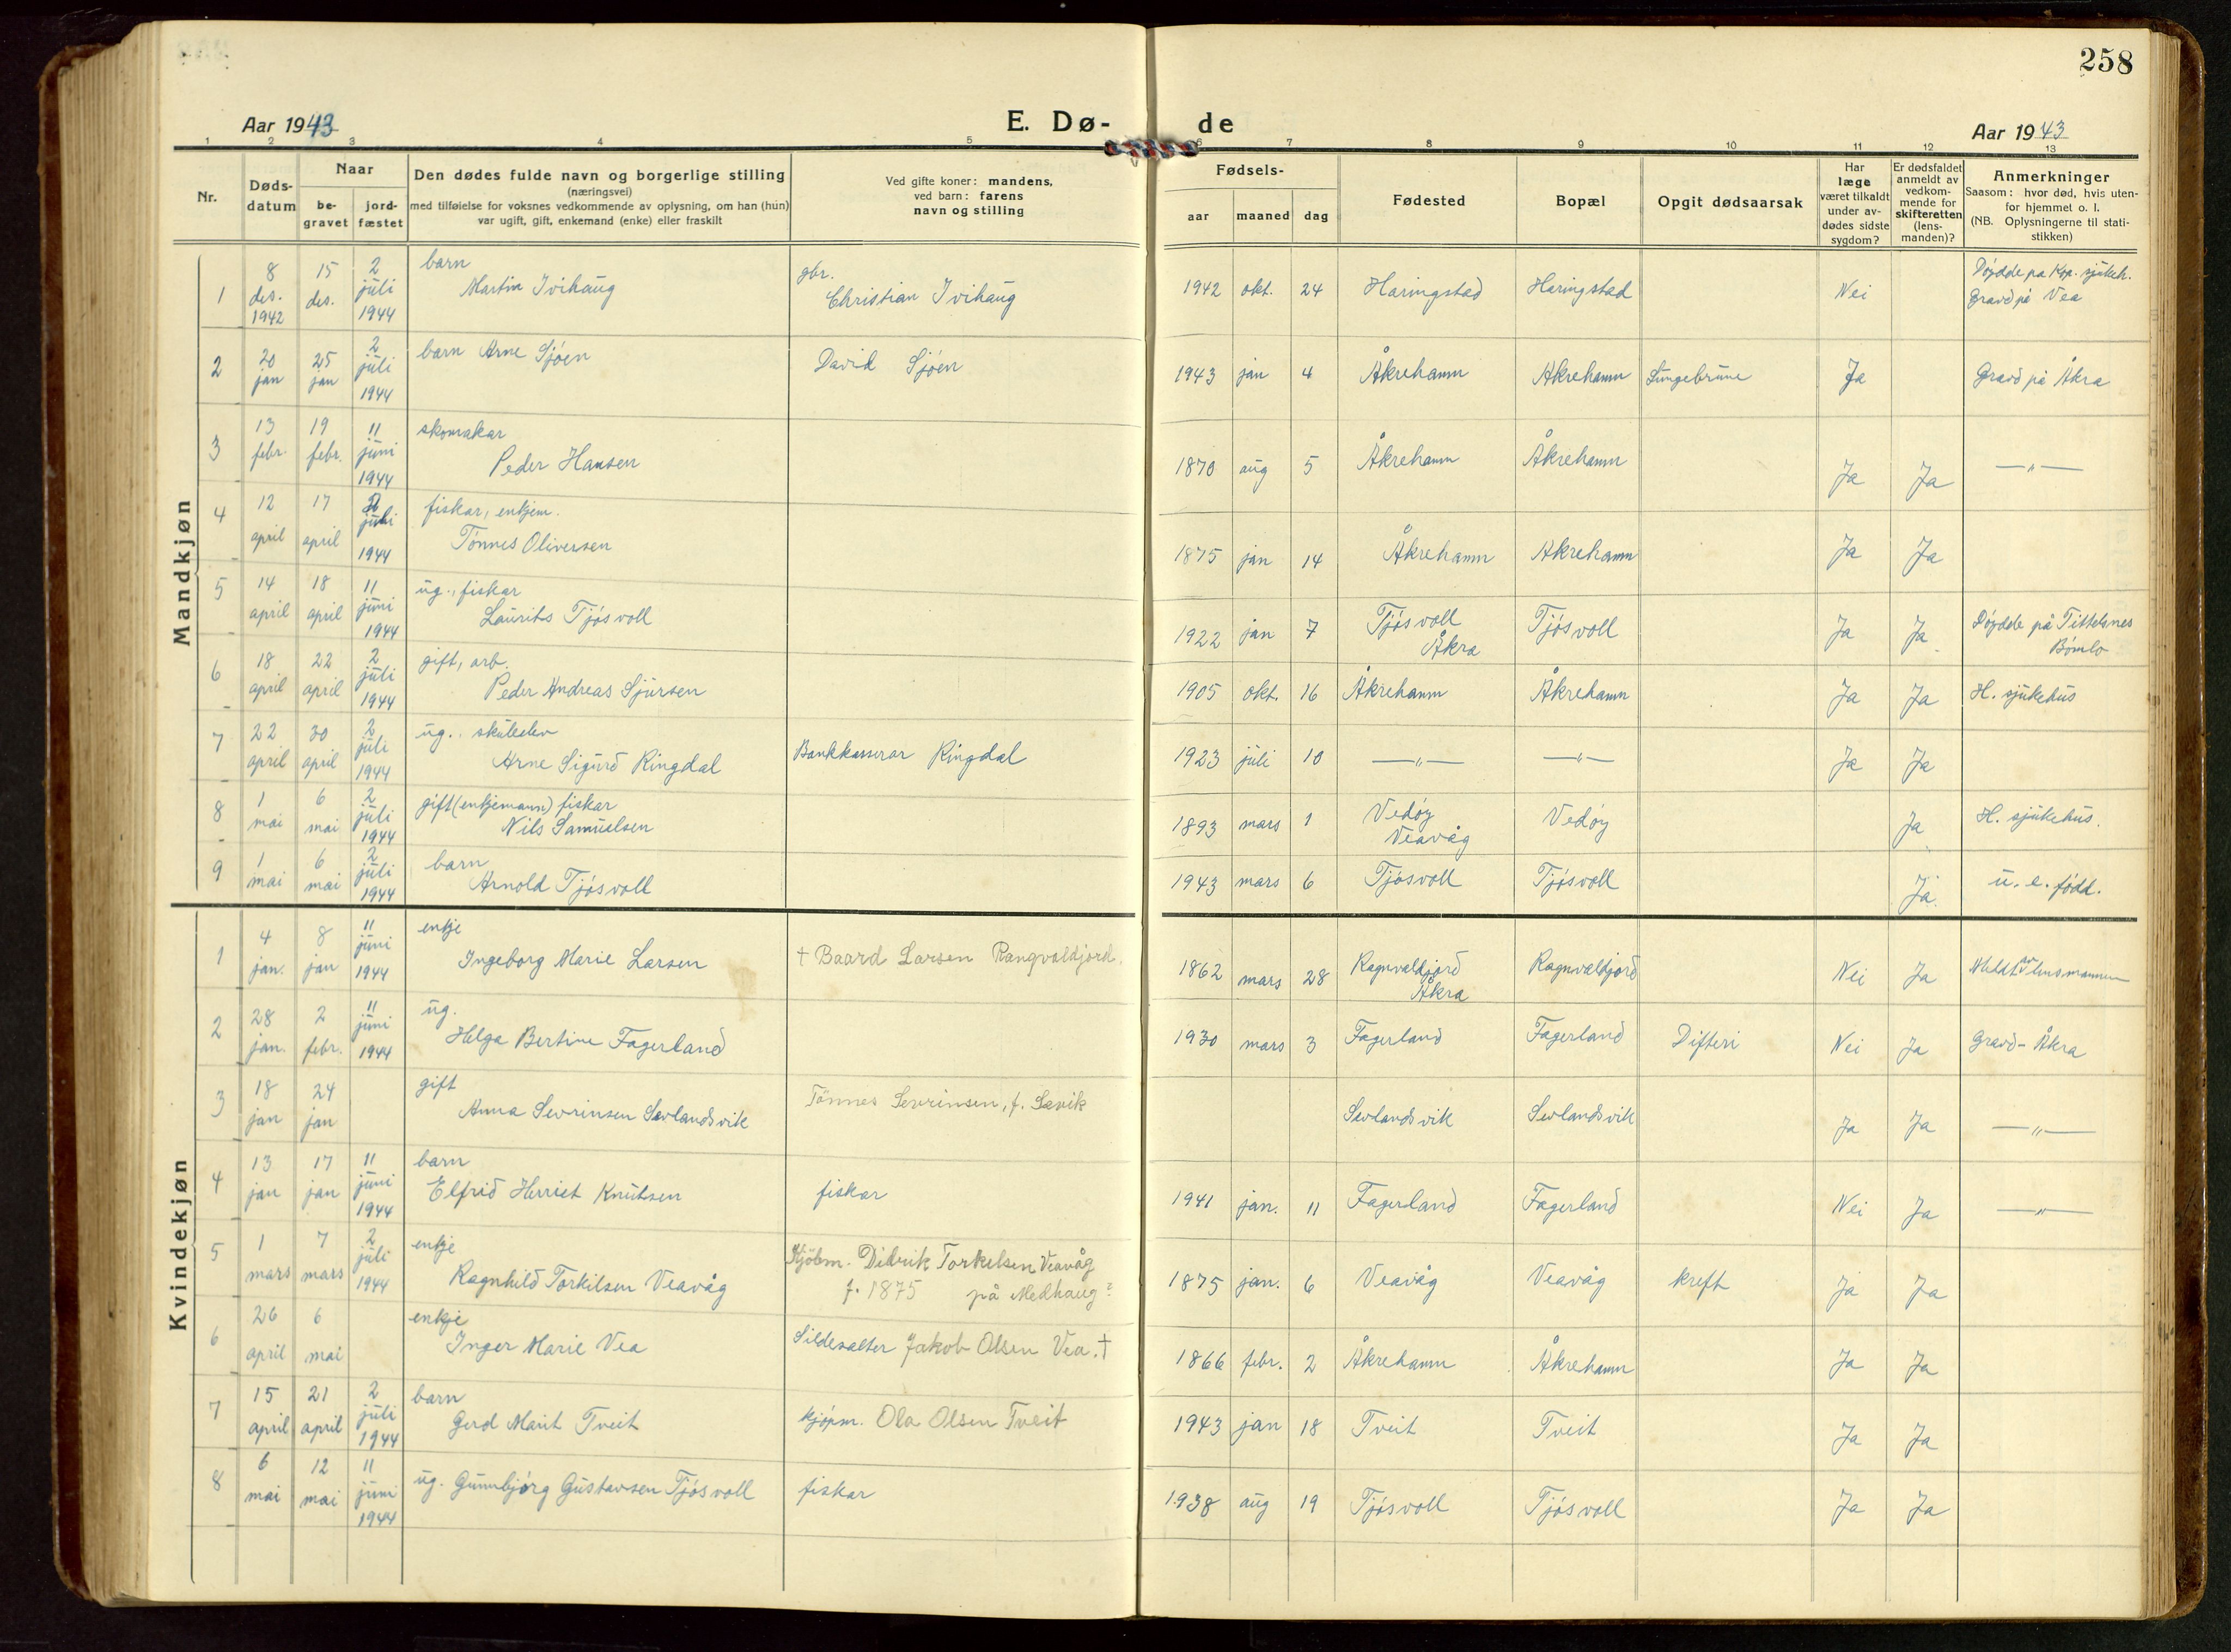 258
Aar 1943
E. Dø-
de
Aar 1943
1 2 3 4 5 6 7 8 9 10 11 12 13
Nr.
Døds-
datum
Naar
be-
gravet
jord-
fæstet
Den dødes fulde navn og borgerlige stilling
(næringsvei)
med tilføielse for voksnes vedkommende av oplysning, om han (hun)
var ugift, gift, enkemand (enke) eller fraskilt
Ved gifte koner: mandens,
ved barn: farens
navn og stilling
Fødsels-
aar maaned dag
Fødested
Bopæl
Opgit dødsaarsak
Har
læge
været tilkaldt
under av-
dødes sidste
sygdom?
Er dødsfaldet
anmeldt av
vedkom-
mende for
skifteretten
(lens-
manden)?
Anmerkninger
Saasom: hvor død, hvis uten-
for hjemmet o. l.
(NB. Oplysningerne til stati-
stikken)
Mandkjøn
1 8 des. 1942 15 des. 2 juli 1944 barn
Martin Ivihaug gbr.
Christian Ivihaug 1942 okt. 24 Haringstad Haringstad Nei Døydde pa Kop. sjukeh.
Gravd på Vea
2 20 jan 25 jan 2 juli 1944 barn Arne Sjøen David Sjøen 1943 jan 4 Åkrehamn Åkrehamn Lungebrune Ja Gravd på Åkra
3 13 febr. 19 febr. 11 juni 1944 skomakar
Peder Hansen 1870 aug 5 Åkrehamn Åkrehamn Ja Ja —"—
4 12 april 17 april juli 1944 fiskar, enkjem.
Tønnes Oliversen 1875 jan 14 Åkrehamn Åkrehamn Ja Ja
5 14 april 18 april 11 juni 1944 ug., fiskar
Laurits Tjøsvoll 1922 jan 7 Tjøsvoll
Åkra Tjøsvoll Ja Ja Døydde på Tittelsnes
Bømlo
6 18 april 22 april 2 juli 1944 gift, arb.
Peder Andreas Sjursen 1905 okt. 16 Åkrehamn Åkrehamn Ja Ja H. sjukehus
7 22 april 30 april 2 juli 1944 ug., skuleelev
Arne Sigurd Ringdal Bankkasserar Ringdal 1923 juli 10 —"— —"— Ja Ja
8 1 mai 6 mai 2 juli 1944 gift (enkjemann) fiskar
Nils Samuelsen 1893 mars 1 Vedøy
Veavåg Vedøy Ja H. sjukehus.
9 1 mai 6 mai 2 juli 1944 barn
Arnold Tjøsvoll 1943 mars 6 Tjøsvoll Tjøsvoll Ja. u. e. fødd.
Kvindekjøn
1 4 jan. 8 jan 11 juni 1944 enkje
Ingeborg Marie Larsen † Baard Larsen Rangvaldjord. 1862 mars 28 Ragnvaldjord
Åkra Ragnvaldjord Nei Ja Meldt av lensmannen
2 28 jan. 2 febr. 11 juni 1944 ug.
Helga Bertine Fagerland 1930 mars 3 Fagerland Fagerland Difteri Nei Ja Gravd - Åkra
3 18 jan 24 jan gift
Anna Sevrinsen Sevlandsvik Tønnes Sevrinsen, f. Sævik Sevlandsvik Sevlandsvik Ja Ja —"—
4 13 jan 17 jan 11 juni 1944 barn
Elfrid Herriet Knutsen fiskar 1941 jan. 11 Fagerland Fagerland Nei Ja —"—
5 1 mars 7 mars 2 juli 1944 enkje
Ragnhild Torkilsen Veavåg Kjöbm. Didrik Torkelsen Veavåg
f. 1875 på Medhaug? 1875 jan. 6 Veavåg Veavåg kreft Ja Ja
6 26 april 6 mai enkje
Inger Marie Vea Sildesalter Jakob Olsen Vea. † 1866 febr. 2 Åkrehamn Åkrehamn Ja Ja
7 15 april 21 april 2 juli 1944 barn
Gerd Marit Tveit kjøpm. Ola Olsen Tveit 1943 jan 18 Tveit Tveit Ja Ja
8 6 mai 12 mai 11 juni 1944 ug. Gunnbjørg Gustavsen Tjøsvoll fiskar 1938 aug 19 Tjøsvoll Tjøsvoll Ja Ja